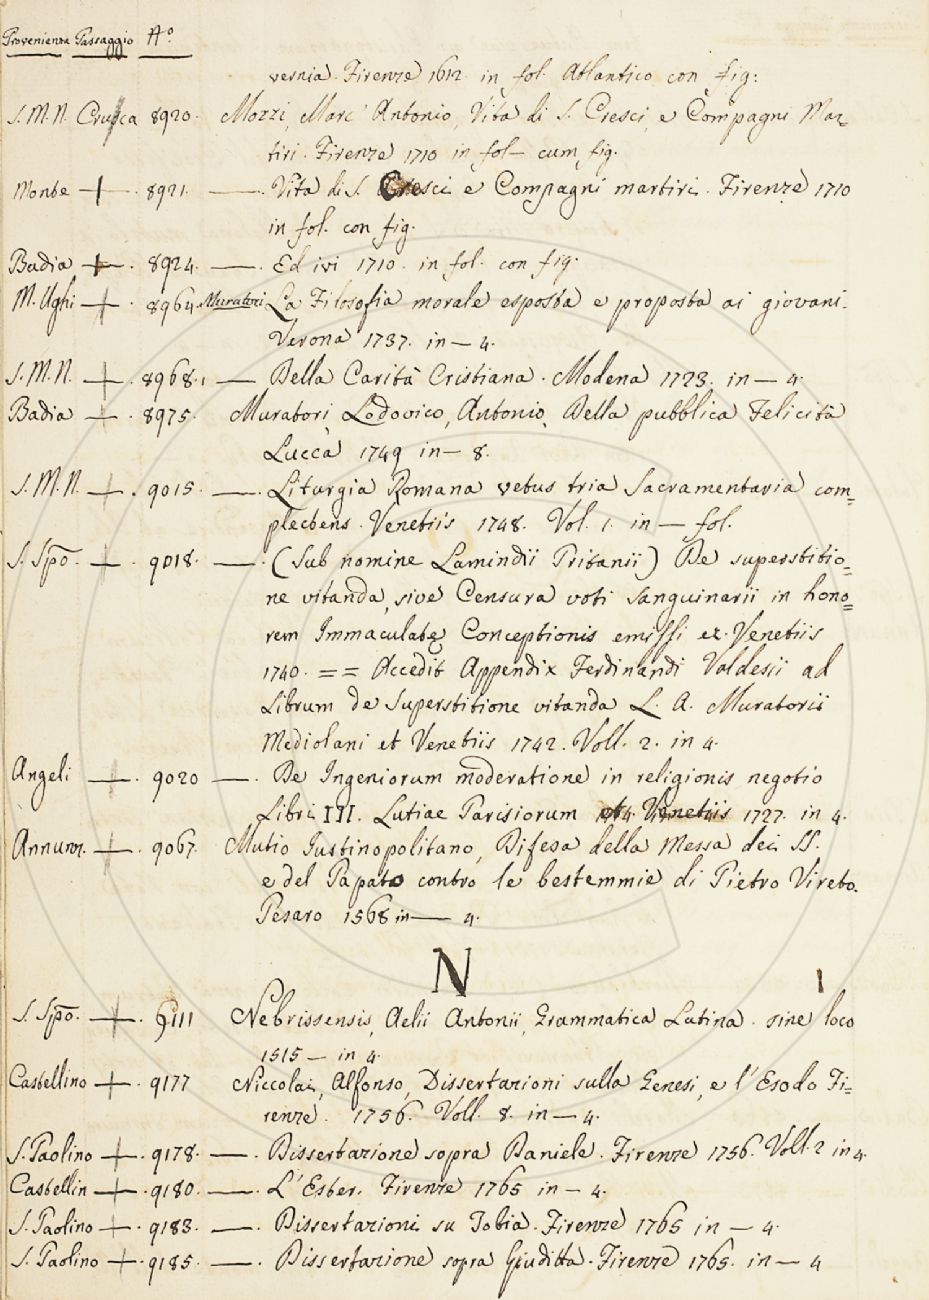 Provenienza Passaggio Aº
vernia. Firenze 1612. in fol. Atlantico con fig:
S. M. N. Crusca 8920. Mozzi, Marc' Antonio, Vita di S. Cresci, e Compagni Mar=
tiri. Firenze 1710 in fol— cum fig.
Monte +. 8921. —. Vita di S. Cresci e Compagni martiri. Firenze 1710
in fol. con fig.
Badia +. 8924. —. Ed ivi 1710. in fol. con fig.
M. Ughi +. 8964. Muratori La Filosofia morale esposta e proposta ai giovani.
Verona 1737. in — 4.
S. M. N. +. 8968. — Della Carità Cristiana. Modena 1723. in — 4.
Badia +. 8975. Muratori, Lodovico, Antonio, Della pubblica Felicità
Lucca 1749 in — 8.
S. M. N. +. 9015. —. Liturgia Romana vetus tria Sacramentaria com=
plectens. Venetiis 1748. Vol. 1. in — fol.
S. Spō. +. 9018. —. (Sub nomine Lamindii Pritanii) De superstitio=
ne vitanda, sive Censura voti Sanguinarii in hono=
rem Immaculatę Conceptionis emissi ex. Venetiis
1740. == Accedit Appendix Ferdinandi Valdesii ad
Librum de Superstitione vitanda L. A. Muratorii
Mediolani et Venetiis 1742. Voll. 2. in 4.
Angeli +. 9020 —. De Ingeniorum moderatione in religionis negotio
Libri III. Lutiae Parisiorum et Venetiis 1727. in 4.
Annunz. +. 9067. Mutio Iustinopolitano, Difesa della Messa dei SS.
e del Papato contro le bestemmie di Pietro Vireto.
Pesaro 1568 in — 4.
N
S. Spō. +. 9111 Nebrissensis, Aelii Antonii, Grammatica Latina. sine loco
1515 — in 4.
Castellino +. 9177 Niccolai, Alfonso, Dissertazioni sulla Genesi, e l'Esodo Fi=
renze. 1756. Voll. 8. in — 4.
S. Paolino +. 9178. —. Dissertazione sopra Daniele. Firenze 1756. Voll. 2 in 4.
Castellin +. 9180. —. L'Ester. Firenze 1765 in — 4.
S. Paolino +. 9183. —. Dissertazioni su Tobia. Firenze 1765 in — 4.
S. Paolino +. 9185. —. Dissertazione sopra Giuditta. Firenze 1765. in — 4